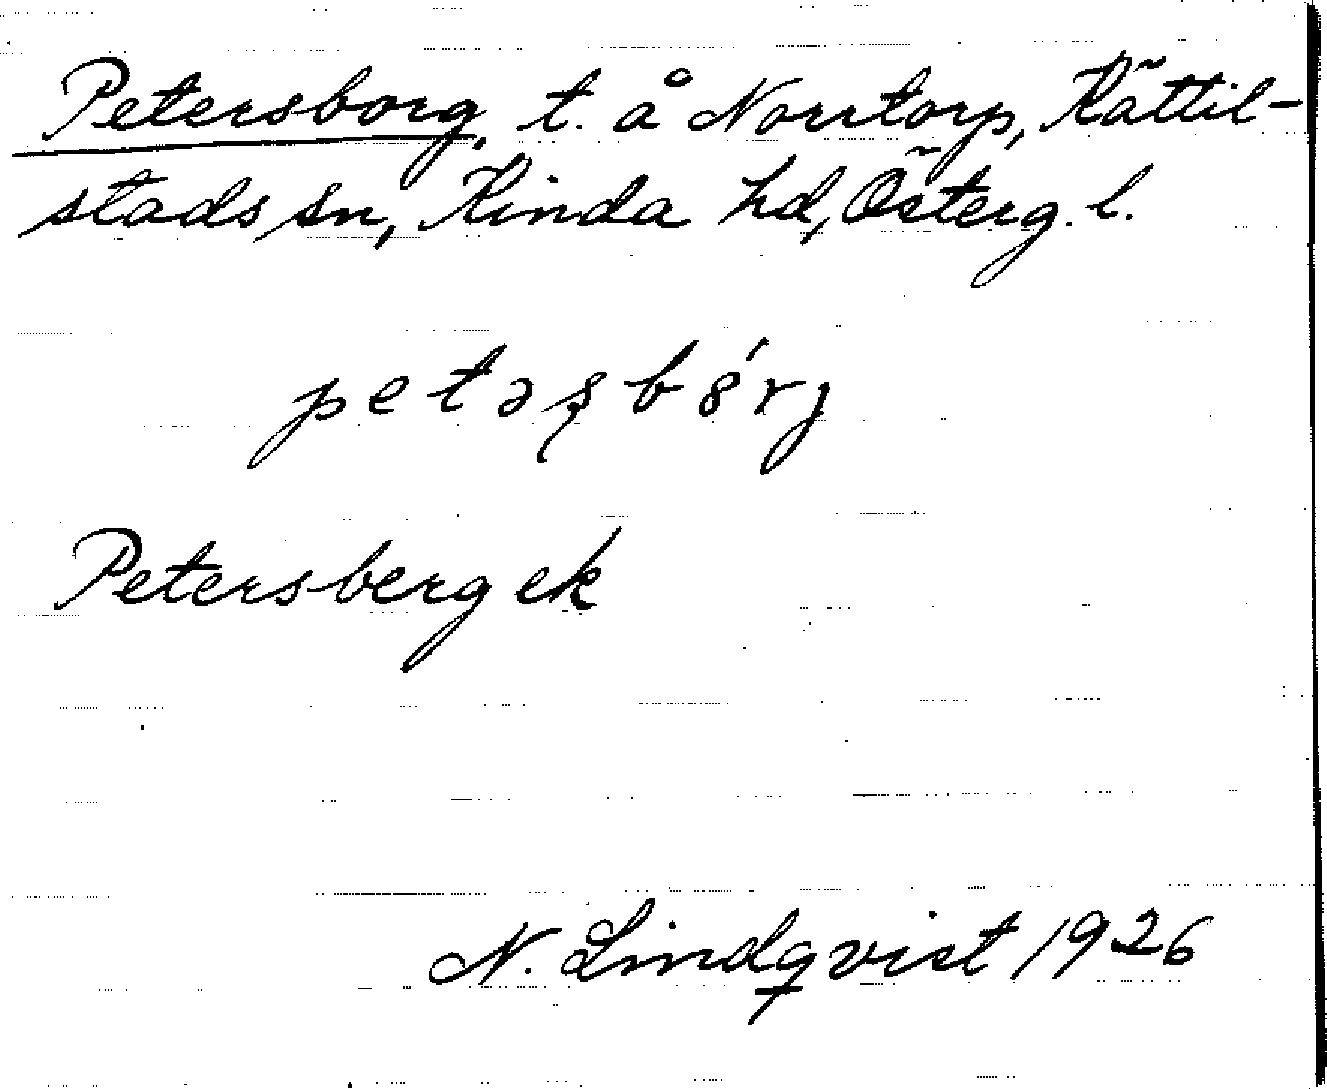 Petersborg, t. å Norrtorp, Kättil-
stads sn, Kinda hd, Österg. l.
petəʂbȣ́rj
Petersberg ek
N. Lindqvist 1926